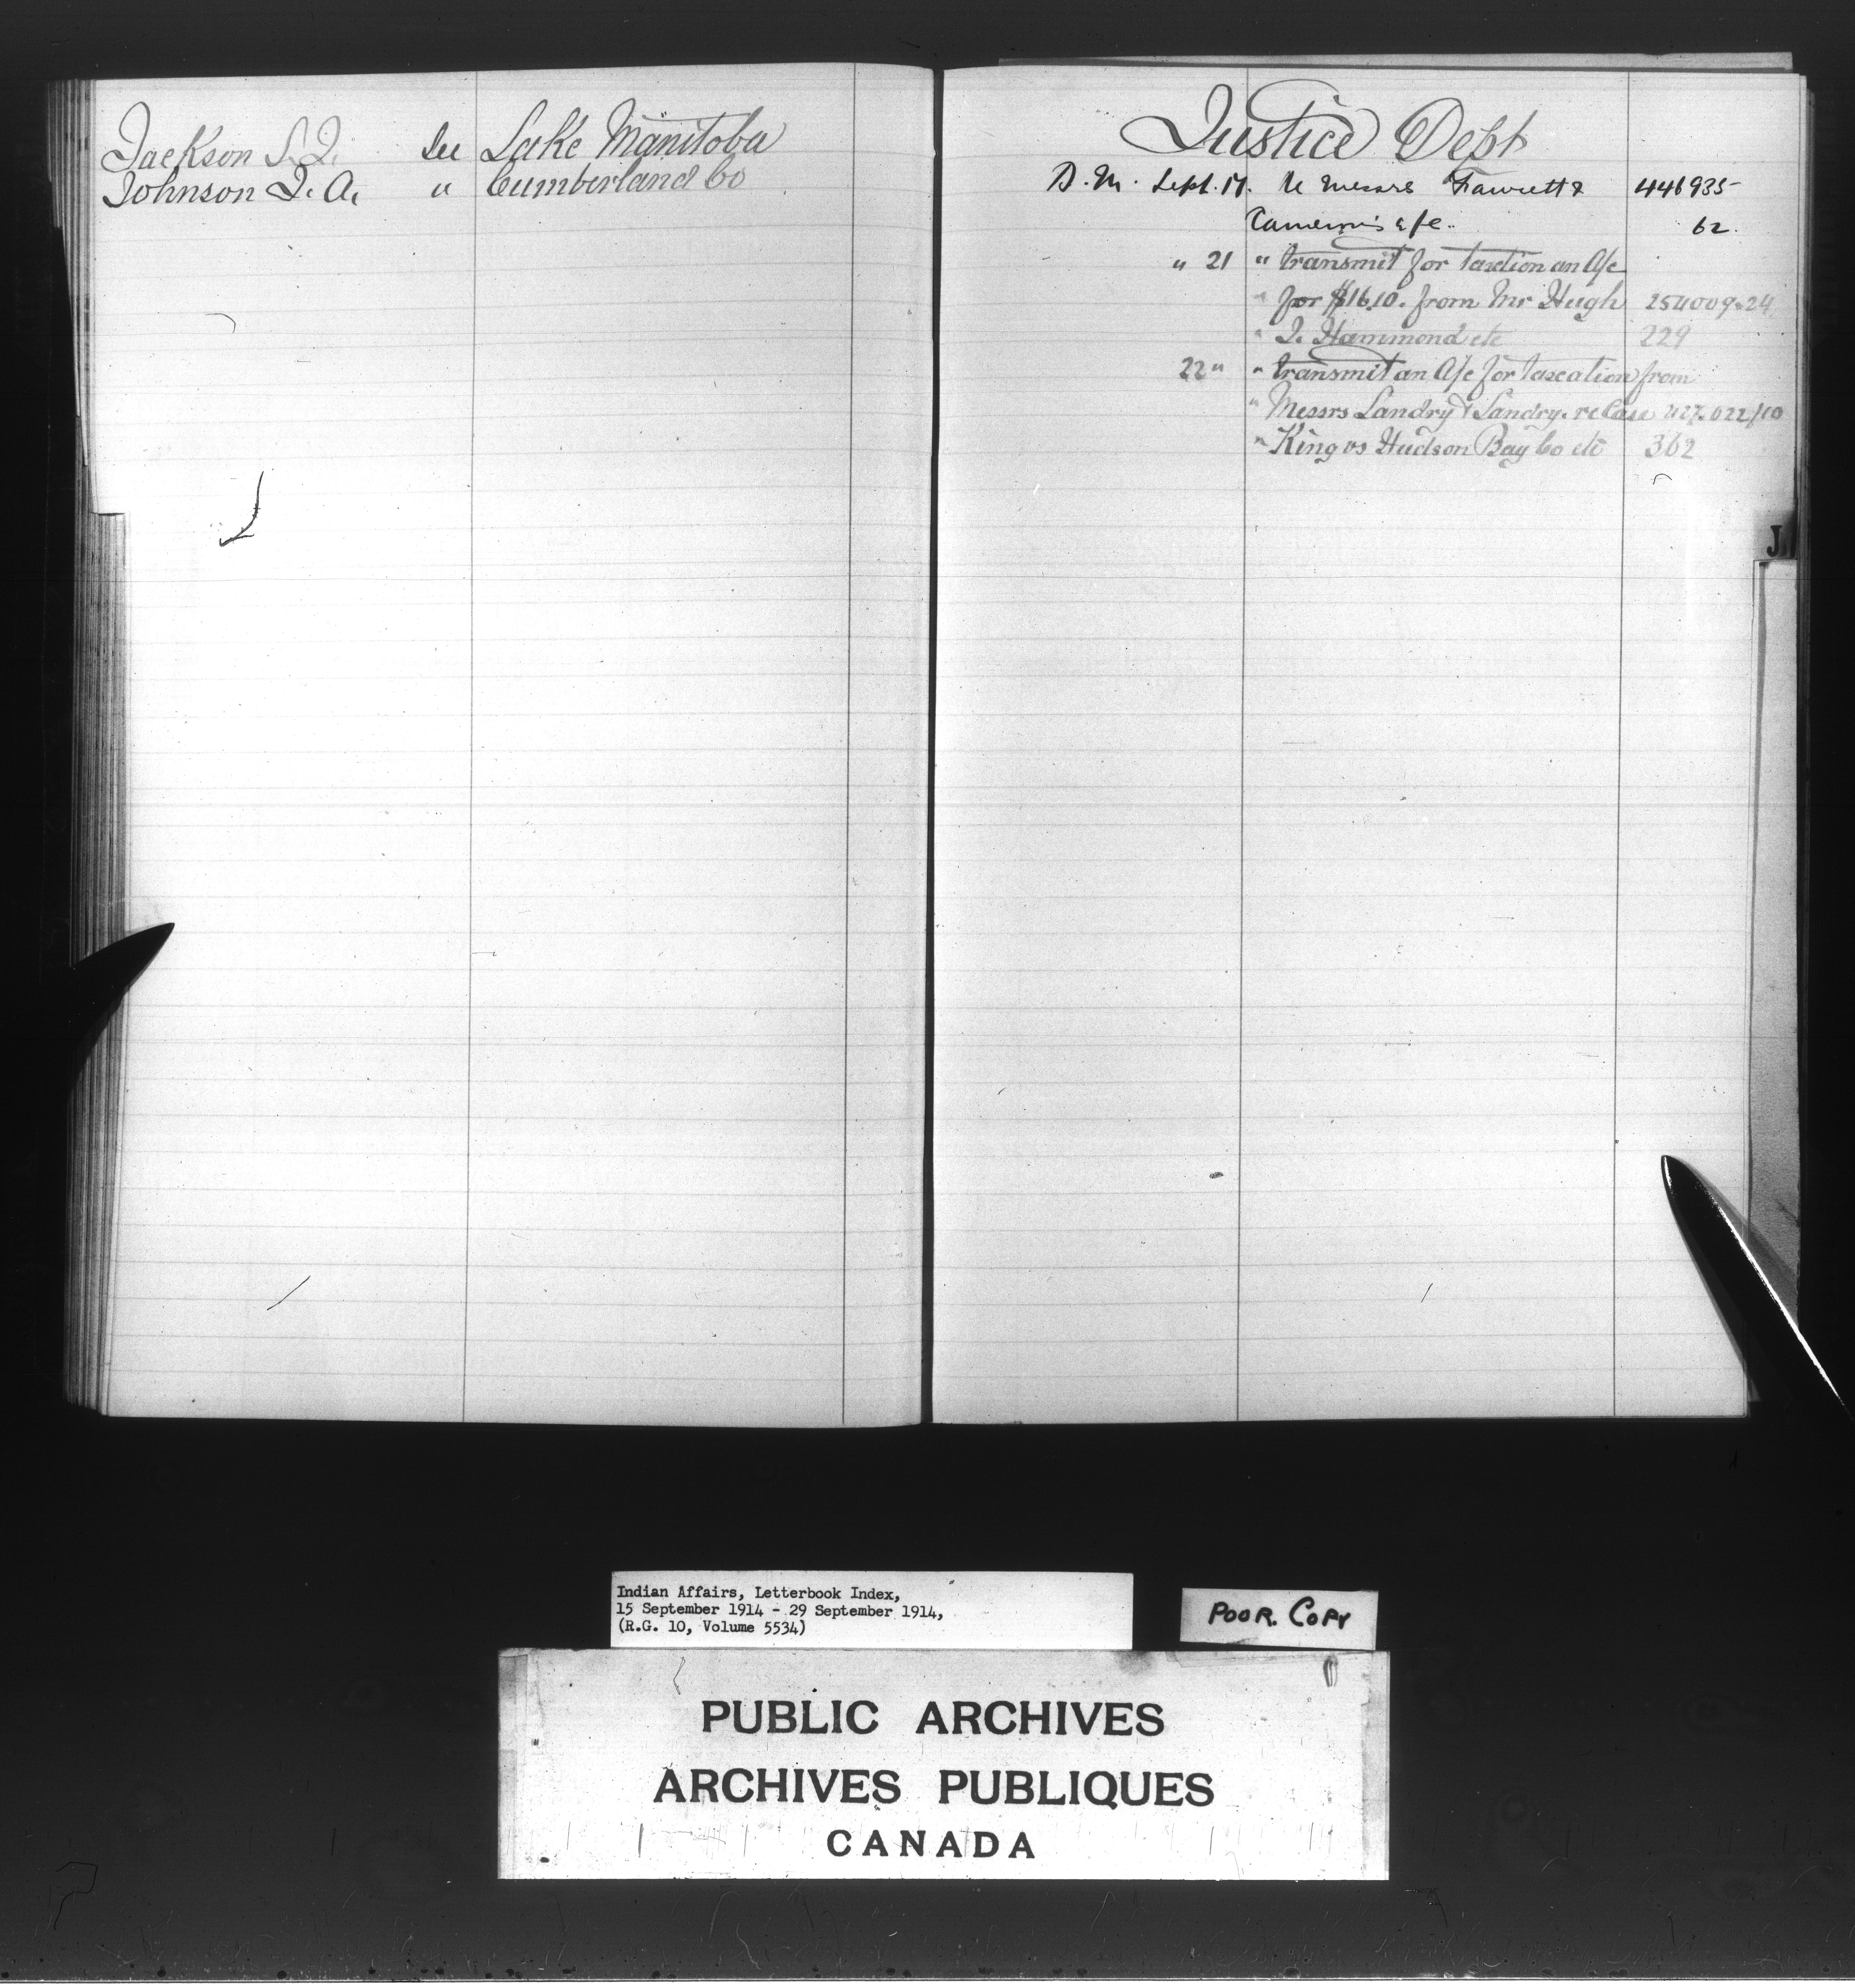 Jackson S. J. See Lake Manitoba
Johnson J. A. " Cumberland Co
Justice Dept
D. M. Sept. 17. re Messrs Fawcett & 446935
Cameron's a/c. 62.
" 21 " transmit for taxtion an A/c
" for $16.10. from Mr Hugh 254009-24
" J. Hammond etc 229
22 " " transmit an A/c for taxcation from
" Messrs Landry & Landry. re Case 427.022/10
" King vs Hudson Bay Co etc 362
J
Indian Affairs, Letterbook Index,
15 September 1914 - 29 September 1914,
(R.G. 10, Volume 5534)
POOR. COPY
PUBLIC ARCHIVES
ARCHIVES PUBLIQUES
CANADA